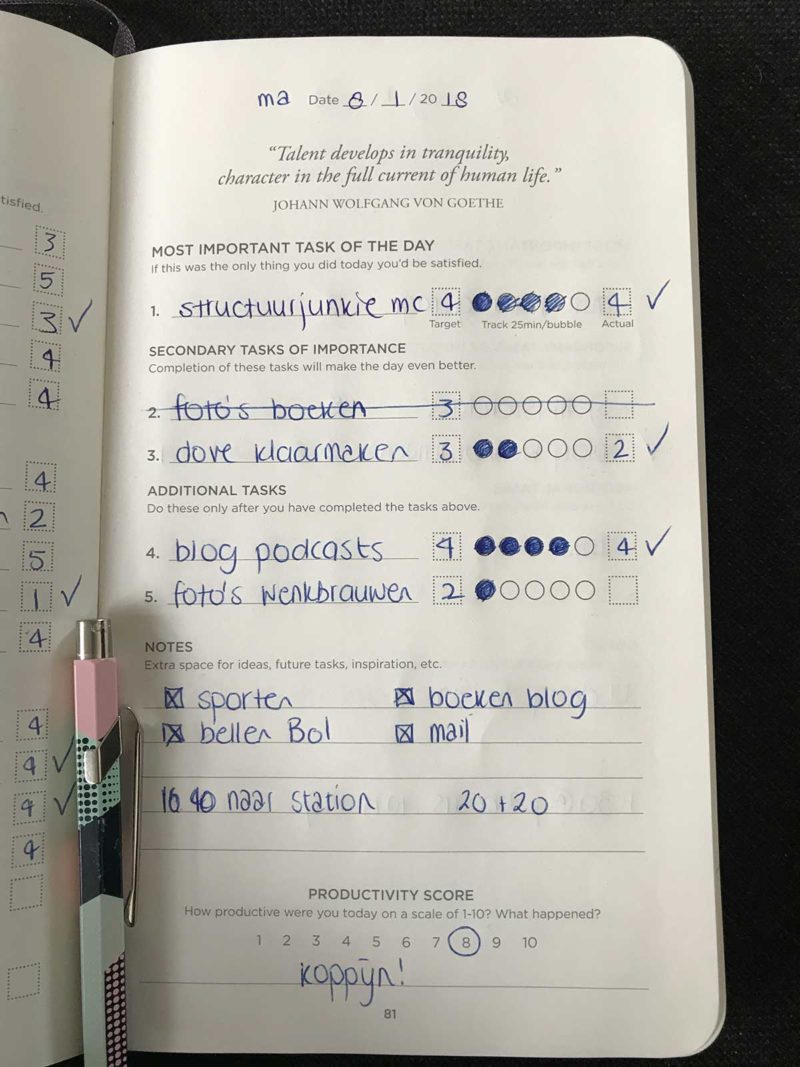 tisfied.
3
5
3 ✓
4
4
4
2
5
1 ✓
4
4
4 ✓
4 ✓
4
ma Date 8 / 1 / 20 18
“Talent develops in tranquility,
character in the full current of human life.”
JOHANN WOLFGANG VON GOETHE
MOST IMPORTANT TASK OF THE DAY
If this was the only thing you did today you'd be satisfied.
1. structuurjunkie mc 4 4 ✓
Target Track 25min/bubble Actual
SECONDARY TASKS OF IMPORTANCE
Completion of these tasks will make the day even better.
2. foto's boeken 3
3. dove klaarmaken 3 2 ✓
ADDITIONAL TASKS
Do these only after you have completed the tasks above.
4. blog podcasts 4 4 ✓
5. foto's wenkbrauwen 2
NOTES
Extra space for ideas, future tasks, inspiration, etc.
☒ sporten ☒ boeken blog
☒ bellen Bol ☒ mail
16 40 naar station 20 + 20
PRODUCTIVITY SCORE
How productive were you today on a scale of 1-10? What happened?
1 2 3 4 5 6 7 8 9 10
koppijn!
81